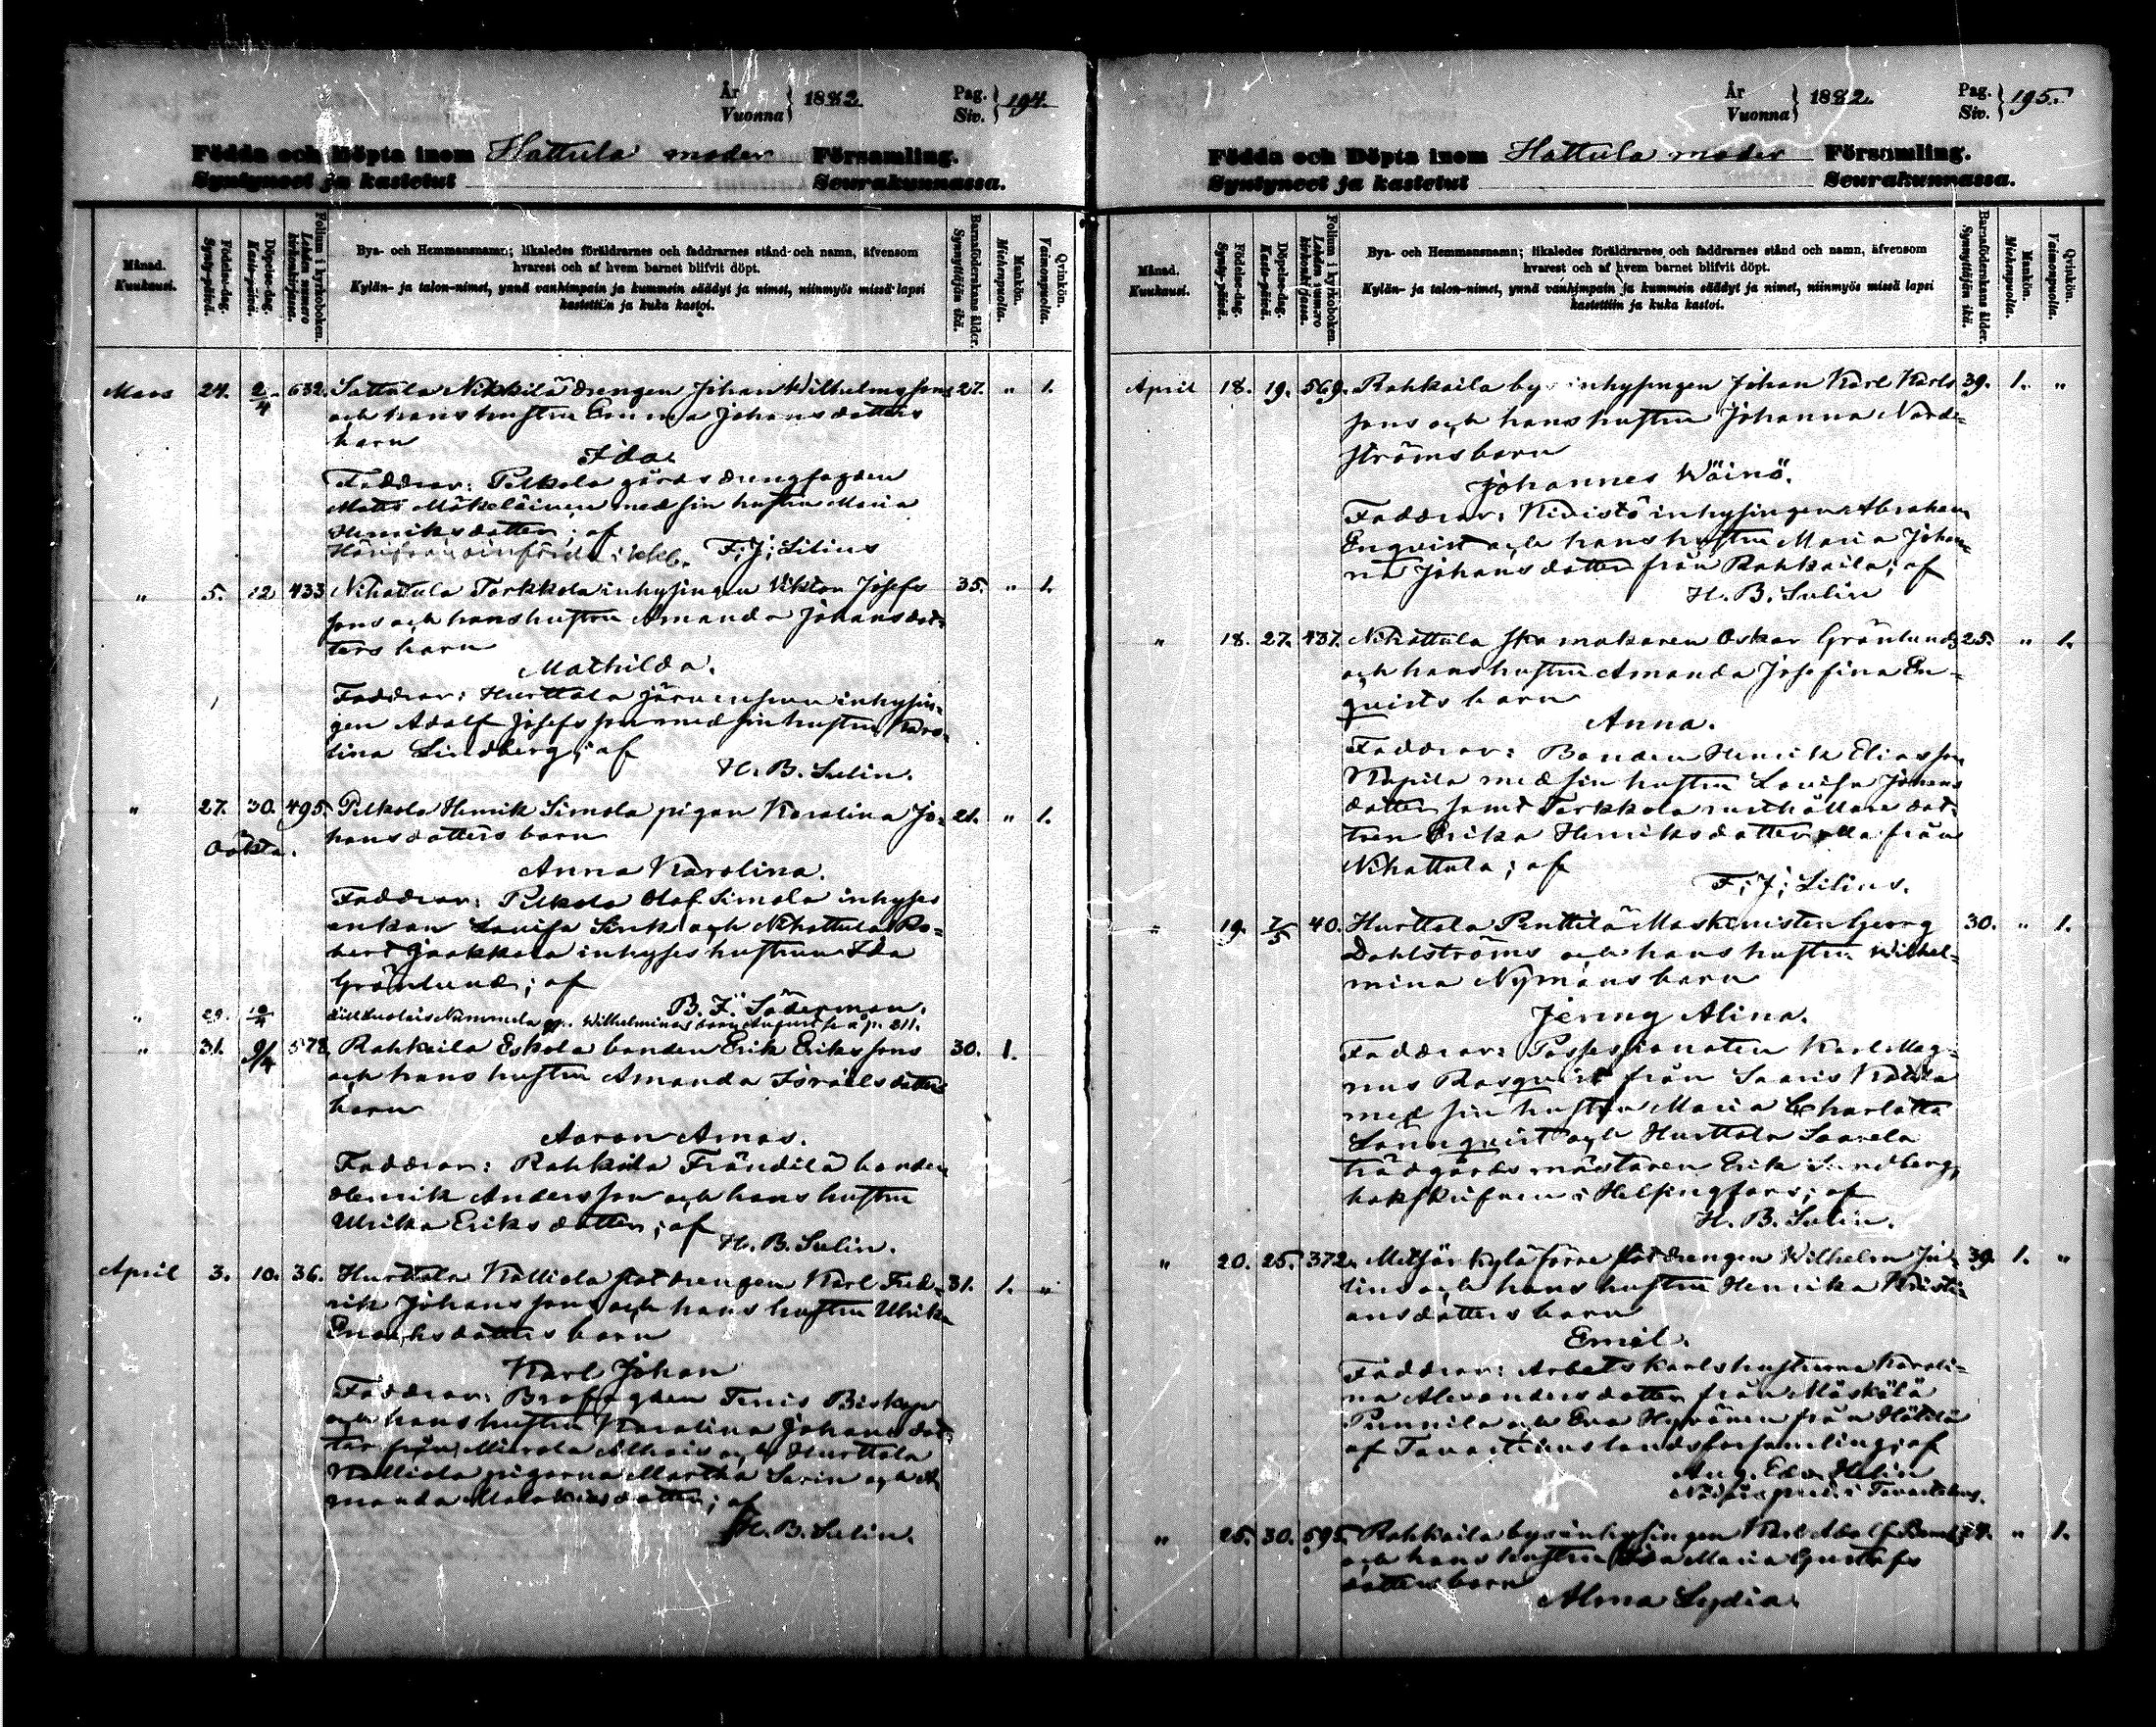 År
Vuonna } 1882. Pag.
Siv. } 194.
Födda och Döpta inom Hattula moder Församling.
Syntyneet ja kastetut Seurakunnassa.
Månad.
Kuukausi.
Födelse-dag.
Synty-päivä.
Döpelse-dag.
Kaste-päivä.
Folium i kyrkoboken.
Lehden numero
kirkonkirjassa.
Bya- och Hemmansnamn; likaledes föräldrarnes och faddrarnes stånd och namn, äfvensom
hvarest och af hvem barnet blifvit döpt.
Kylän- ja talon-nimet, ynnä vanhimpain ja kummein säädyt ja nimet, niinmyös missä lapsi
kastettiin ja kuka kastoi.
Barnaföderskans ålder.
Synnyttäjän ikä.
Mankön.
Miehenpuolta.
Qvinkön.
Vaimonpuolta.
Mars 24. 2/4 632. Sattula Nikkilä drengen Johan Wilhelmssons 27. " 1.
och hans hustru Emma Johansdotters
barn
Ida
Faddrar: Pelkola gårds drengfogden
Matts Mäkeläinen med sin hustru Maria
Henriksdotter; af
F. J. Lilius
" 5. 12 433 Nihattula Torkkola inhysingen Viktor Josefs 35. " 1.
sons och hans hustru Amanda Johansdot-
ters barn
Mathilda.
Faddrar: Hurttala Järvensuu inhysin-
gen Adolf Josefsson med sin hustru Karo-
lina Lindberg; af
H. B. Sulin.
" 27. 30. 495. Pelkola Henrik Simola pigan Karolina Jo- 21. " 1.
Oäkta. hansdotters barn
Anna Karolina.
Faddrar: Pelkola Olof Simola inhyses
enkan Lovisa Sink och Nihattula Ro-
bert Jaakkola inhyses hustrun Ida
Grönlund; af
B. F. Söderman.
" 29. 10/4 Nummela Wilhelminas barn August se p. 211.
" 31. 9/4 578. Rahkaila Eskola bonden Erik Erikssons 30. 1.
och hans hustru Amanda Israelsdotters
barn
Aaron Amos.
Faddrar: Rahkaila Frändilä bonden
Henrik Andersson och hans hustru
Ulrika Eriksdotter; af
H. B. Sulin.
April 3. 10. 36. Hurttala Kalliola statdrengen Karl Fred- 31. 1. "
rik Johanssons och hans hustru Ulrika
Enochsdotters barn
Karl Johan
Faddrar: Brofogden Tenis Biskop
och hans hustru Karolina Johansdot-
ter från Mierola Alhais och Hurttala
Kalliola pigorna Martha Sarin och A-
manda; af
H. B. Sulin.
År
Vuonna } 1882. Pag.
Siv. } 195.
Födda och Döpta inom Hattula moder Församling.
Syntyneet ja kastetut Seurakunnassa.
Månad.
Kuukausi.
Födelse-dag.
Synty-päivä.
Döpelse-dag.
Kaste-päivä.
Folium i kyrkoboken.
Lehden numero
kirkonkirjassa.
Bya- och Hemmansnamn; likaledes föräldrarnes och faddrarnes stånd och namn, äfvensom
hvarest och af hvem barnet blifvit döpt.
Kylän- ja talon-nimet, ynnä vanhimpain ja kummein säädyt ja nimet, niinmyös missä lapsi
kastettiin ja kuka kastoi.
Barnaföderskans ålder.
Synnyttäjän ikä.
Mankön.
Miehenpuolta.
Qvinkön.
Vaimonpuolta.
April 18. 19. 569. Rahkaila bys inhysingen Johan Karl Karls 39. 1. "
sons och hans hustru Johanna Nord-
ströms barn
Johannes Wäinö.
Faddrar: Kivistö inhysingen Abraham
Enqvist och hans hustru Maria Johan-
na Johansdotter från Rahkaila; af
H. B. Sulin
" 18. 27. 437. Nihattula skomakaren Oskar Grönlunds 25. " 1.
och hans hustru Amanda Josefina En-
qvists barn
Anna.
Faddrar: Bonden Henrik Eliasson
Napila med sin hustru Lovisa Johans
dotter samt Torkkola rusthållare dot-
tren Erika Henriksdotter alla från
Nihattula; af
F. J. Lilius.
" 19. 7/5 40. Hurttala Penttilä Maskinisten Georg 30. " 1.
Dahlströms och hans hustru Wilhel-
mina Nymans barn
Jenny Alina.
Faddrar: Possessionaten Karl Mag-
nus Rosqvist från Saaris
med sin hustru Maria Charlotta
Lönnqvist och Hurttala Saarela
trädgårdsmästaren Erik Sundberg,
i Helsingfors; af
H. B. Sulin.
" 20. 25. 372. Metsänkylä förre statdrengen Wilhelm Ju- 39. 1. "
lins och hans hustru Henrika Kristi-
ansdotters barn
Emil.
Faddrar: Arbetskarlshustrurna Karoli-
na Alexandersdotter från Mäskälä
Punnila och Eva Hyvönen från Hätilä
af Tavastehus landsförsamling; af
Aug. Edv. Helin
i Tavastehus.
" 25. 30. 595. Rahkaila bys inhysingen Karl Adolf 24. " 1.
och hans hustru Ida Maria Gustafs
dotters barn
Alma Lydia.